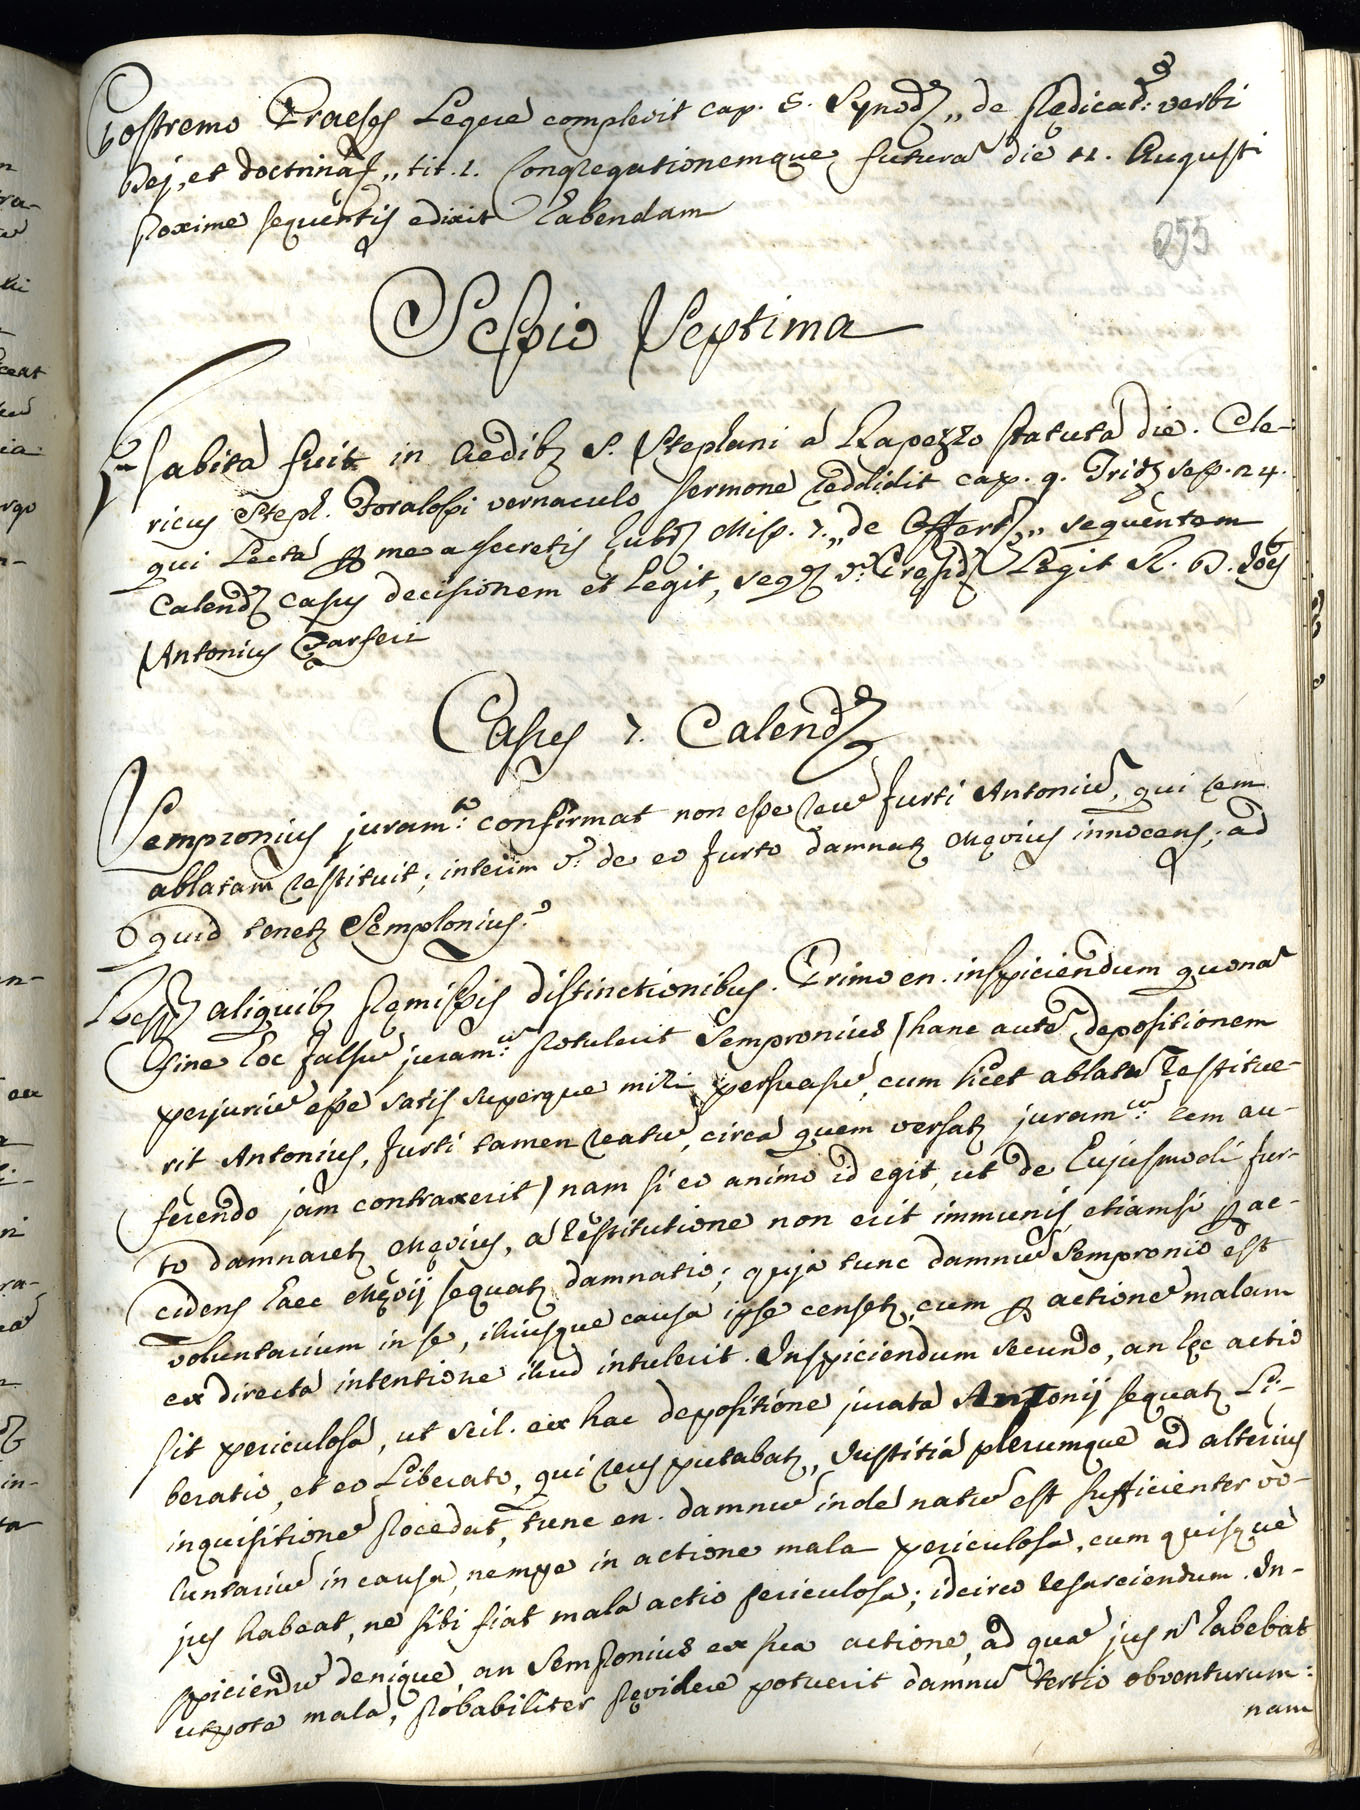 Postremo Praeses Legere complevit cap. 8. Synod. „de Prædicat.e verbi
Dej, et doctrinæ„ tit. 1. Congregationemque futurã die 11. Augusti
proxime sequentis edixit habendam
255
Sessio Septima
Habita fuit in Aedib9 S. Stephani a Rapezzo statutã die. Cle-
ricus Steph. Foralossi vernaculo sermone reddidit cap. 9. Trid. sess. 24.
qui Lectã p me a secretis Rub. Miss. 7. „de Offert.„ sequentem
Calend. casus decisionem et legit, seq. v.º Legit R. D. Joês
Antonius Parseri
Casus 7. Calend.
Sempronius juram.to confirmat non esse reũ furti Antoniũ, qui rem
ablatam restituit; interim v.º de eo furto damnat9 Mævius innocens; ad
quid tenet9 Sempronius?
Resp. aliquib9 præmissis distinctionibus. Primo en. inspiciendum quonã
fine hoc falsũ juram.m protulerit Sempronius (hanc autẽ depositionem
perjuriũ esse satis superque mihi persuasũ, cum licet ablatã restitue-
rit Antonius, furti tamen reatũ, circa quem versat9 juram.m rem au-
ferendo jam contraxerit) nam si eo animo id egit, ut de hujusmodi fur-
to damnaret9 Mævius, a restitutione non erit immunis, etiamsi p ac-
cidens haec Mævij sequat9 damnatio; quja tunc damnũ Sempronio est
voluntarium in se, illiusque causa ipse censet9, cum p actionẽ malam
ex directa intentione illud intulerit. Inspiciendum secundo, an hæc actio
sit periculosa, ut scil. ex hac depositione jurata Antonij sequat9 Li-
beratio, et eo Liberato, qui reus putabat9, Justitia plerumque ad alterius
inquisitionẽ procedat, tunc en. damnũ inde natũ est sufficienter vo-
luntariũ in causa, nempe in actione mala periculosa, cum quisque
jus habeat, ne sibi fiat mala actio periculosa; idcirco resarciendum. In-
spiciendũ denique, an Sempronius ex sua actione, ad quã jus ñ habebat
utpote mala, probabiliter prævidere potuerit damnũ tertio obventurum:
nam